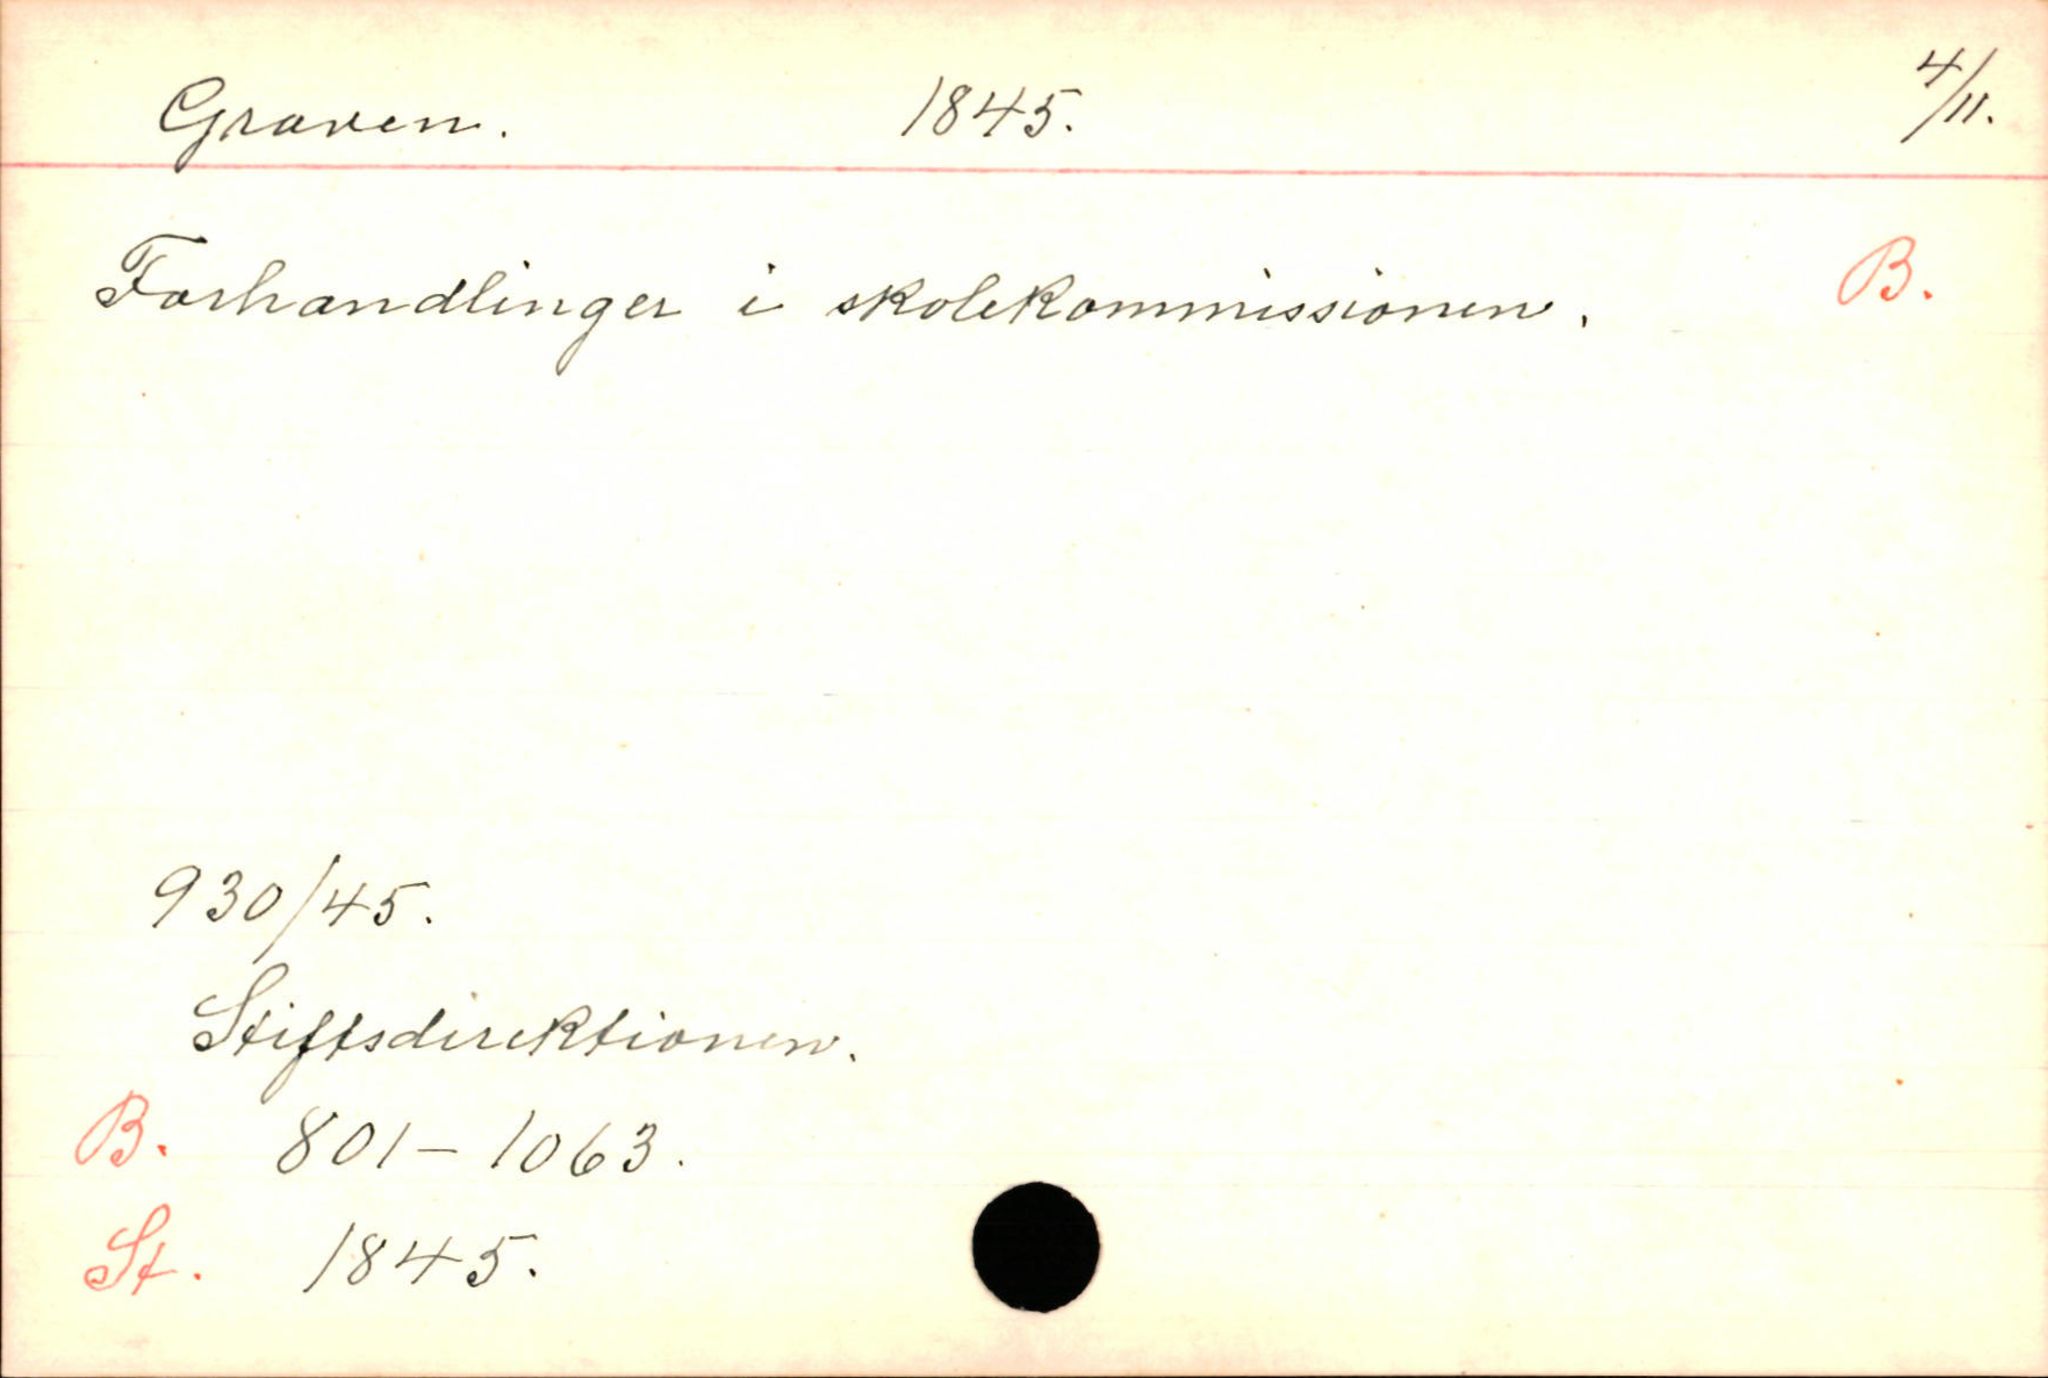 Graven. 1845. 4/11.
Forhandlinger i skolekommissionen. B.
930/45.
Stiftsdirektionen.
B. 801-1063.
St. 1845.